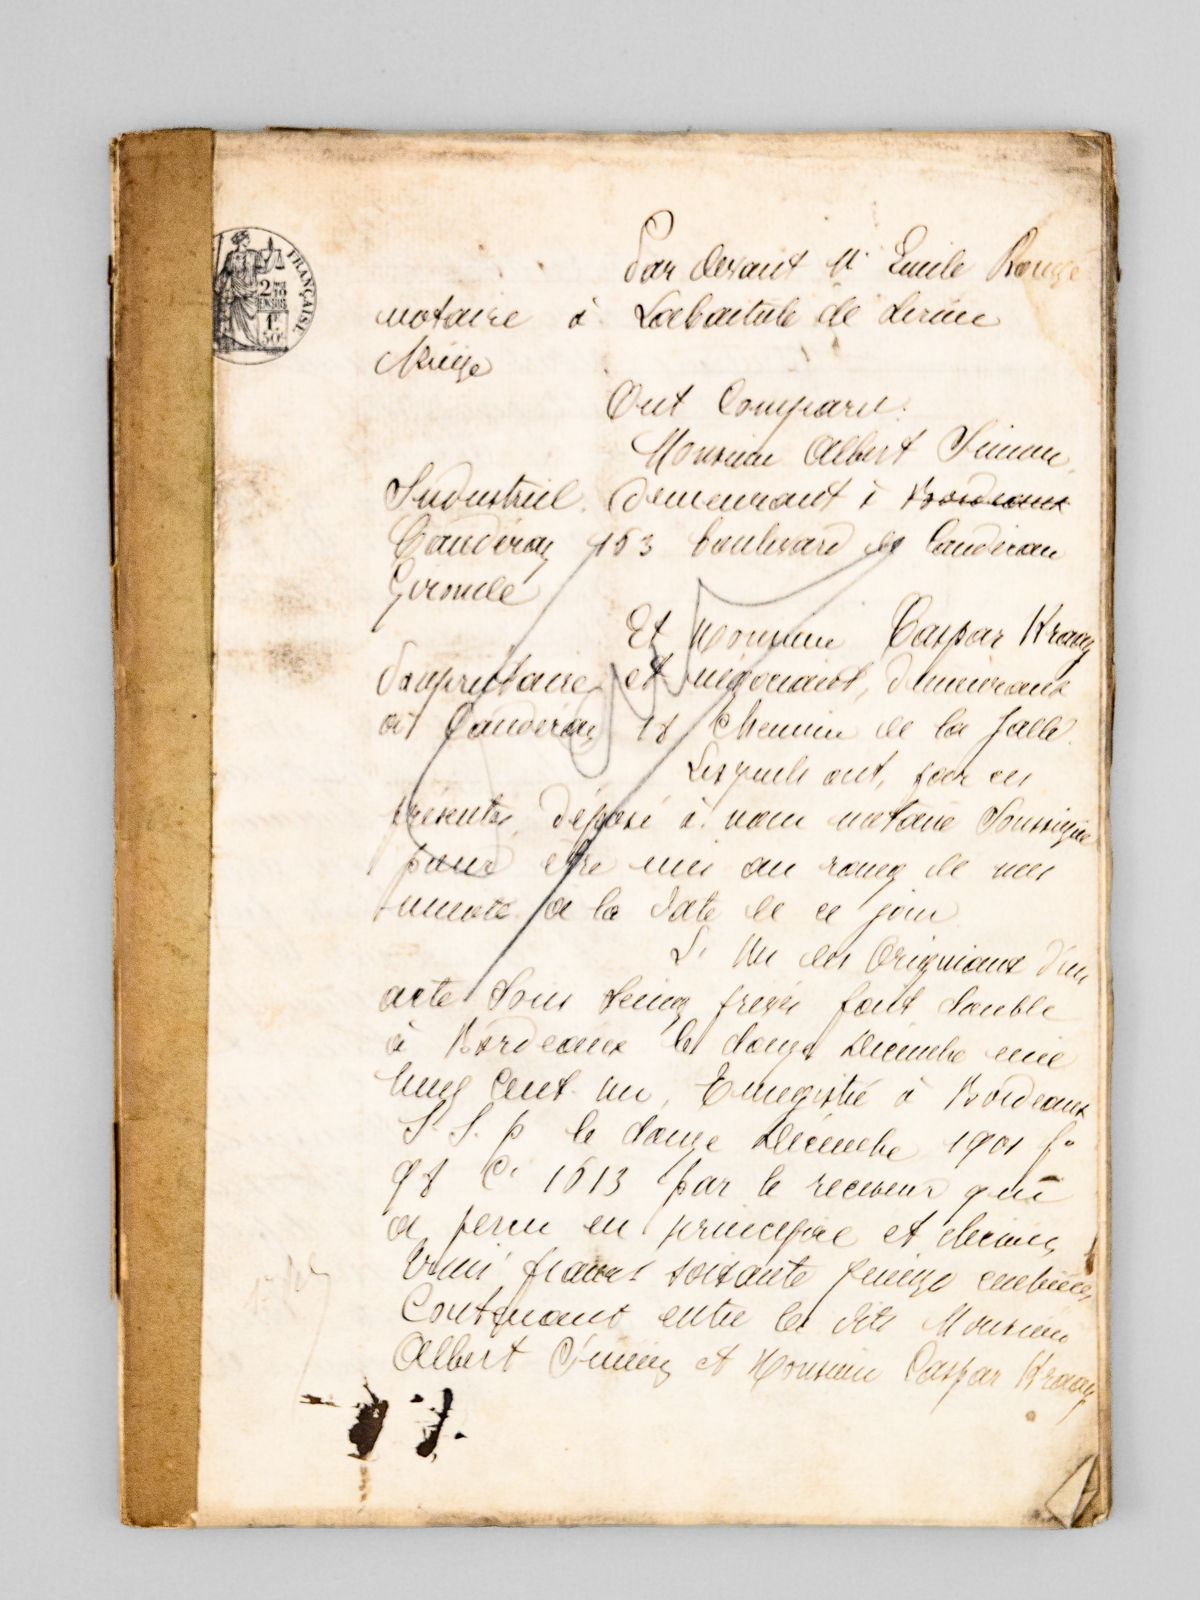 FRANÇAISE
2
Par devant Me Emile Rouge
notaire à Labastide de Sérou
Ariège
Ont Comparu
Monsieur Albert Simon
Industriel, demeurant à Bordeaux
Caudéran 153 boulevard de Caudéran
Gironde
Et Monsieur Caspar Kraay
propriétaire et négociant, demeurant
à Caudéran 18 Chemin de la
Lesquels ont, par ces
présentes, déposé à nous notaire soussigné
pour être mis au rang de nos
minutes à la date de ce jour
Un des Originaux d'un
acte sous seing privé fait double
à Bordeaux le douze Décembre mil
neuf Cent un, Enregistré à Bordeaux
S. S. p le douze Décembre 1901 fo
98 Ce 1613 par le receveur qui
a perçu en principal et décimes
francs soixante quinze centimes
Contenant entre les dits Monsieur
Albert Simon et Monsieur Caspar Kraay